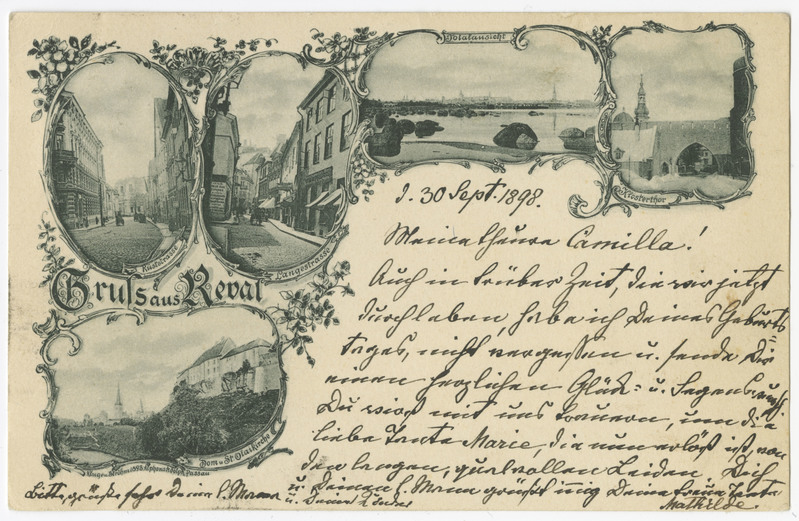 Totalansicht
Langestrasse
Gruss aus Reval
Dom u. St. Olaikirche
d. 30 Sept. 1898.
Meine theure Camilla!
Auch in trüber Zeit, die wir jetzt
durchleben, habe ich Deines Geburts
tages, nicht vergessen u. sende Dir
einen herzlichen Glück- u. Segenswunsch
Du wirst mit uns trauern, um die
liebe Tante Marie, die nun erlöst ist, von
den langen, qualvollen Leiden. Dich
u. Deinen l. Mann grüßt innig Deine treue Tante
Mathilde.
Bitte, grüße sehr Deine l. Mama
u. Deine Kinder